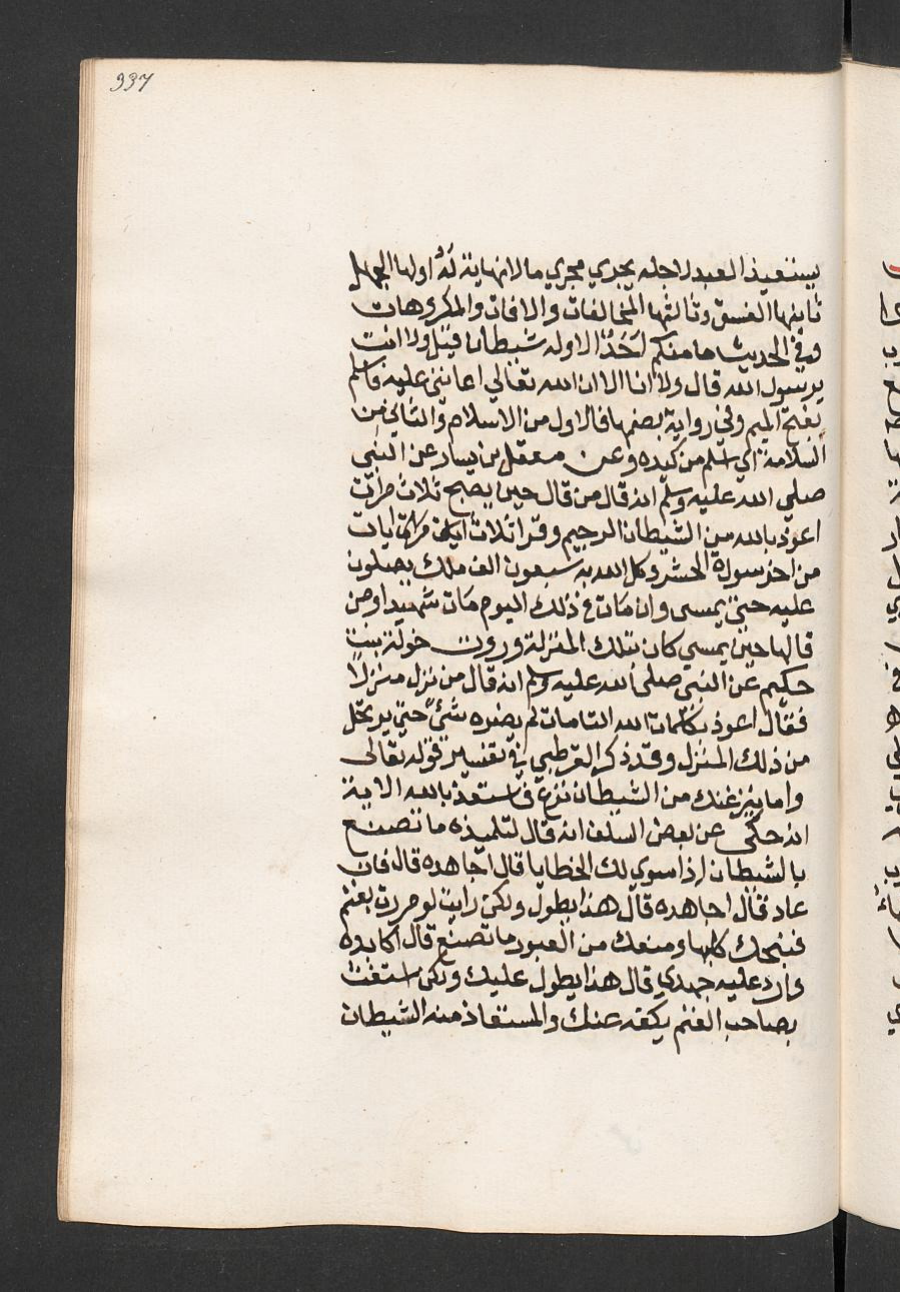 937
يستعيذ العبد لاجله يجري مجري ما لا نهاية لهُ اولها الجهل
ثانيها الفسق وثالثها المخالفات والافات والمكروهات
وفي الحديث ما منكم احَدٌ الا وله شيطان قيل ولا انت
يرسول الله قال ولا انا الا ان الله تعالي اعانني عليه فاسلم
بفتح الميم وفي رواية بضمها فالاول من الاسلام والثاني من
السلامة اي اسلم من كيده وعن معقل بن يسار عن النبي
صلي الله عليه وسلم انه قال من قال حين يصبح ثلاث مرات
اعوذ بالله من الشيطان الرجيم وقرا ثلاث ايات
من اخر سورة الحشر وكل الله به سبعون الف ملك يصلون
عليه حتي يمسى وان مات في ذلك اليوم مات شهيدا ومن
قالها حين يمسي كان بتلك المنزلة وروت خولة بنت
حكيم عن النبي صلى الله عليه وسلم انه قال من نزل منزلا
فقال اعوذ بكلمات الله التامات لم يضره شئ حتي يرتحل
من ذلك المنزل وقد ذكر القرطبي في تفسير قوله تعالى
واما ينزغنك من الشيطان نزغ فاستعذ بالله الاية
انه حكى عن بعض السلف انه قال لتلميذه ما تصنع
بالشيطان اذا سوي لك الخطايا قال اجاهده قال فان
عاد قال اجاهده قال هذا يطول ولكن رايت لو مررت بغنم
فنبحك كلبها ومنعك من العبور ما تصنع قال اكابده
وارد عليه جهدي قال هذا يطول عليك ولكن استغث
بصاحب الغنم يكفه عنك والمستعاذ منه الشيطان